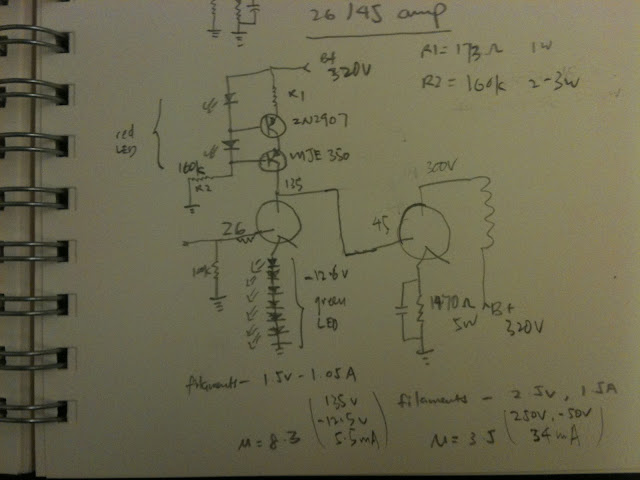 26/45 amp
B+
320V
R1 = 173Ω 1w
R2 = 160k 2-3w
R1
2N2907
red
LED
MJE 350
160k
R2
135
300V
26
45
100k
-12.6v
green
LED
1470Ω
5w
B+
320V
filaments - 1.5v - 1.05A
135v
-12.5v
M = 8.3 5.5mA
filaments - 2.5v, 1.5A
250V, -50V
M = 3.5 34mA